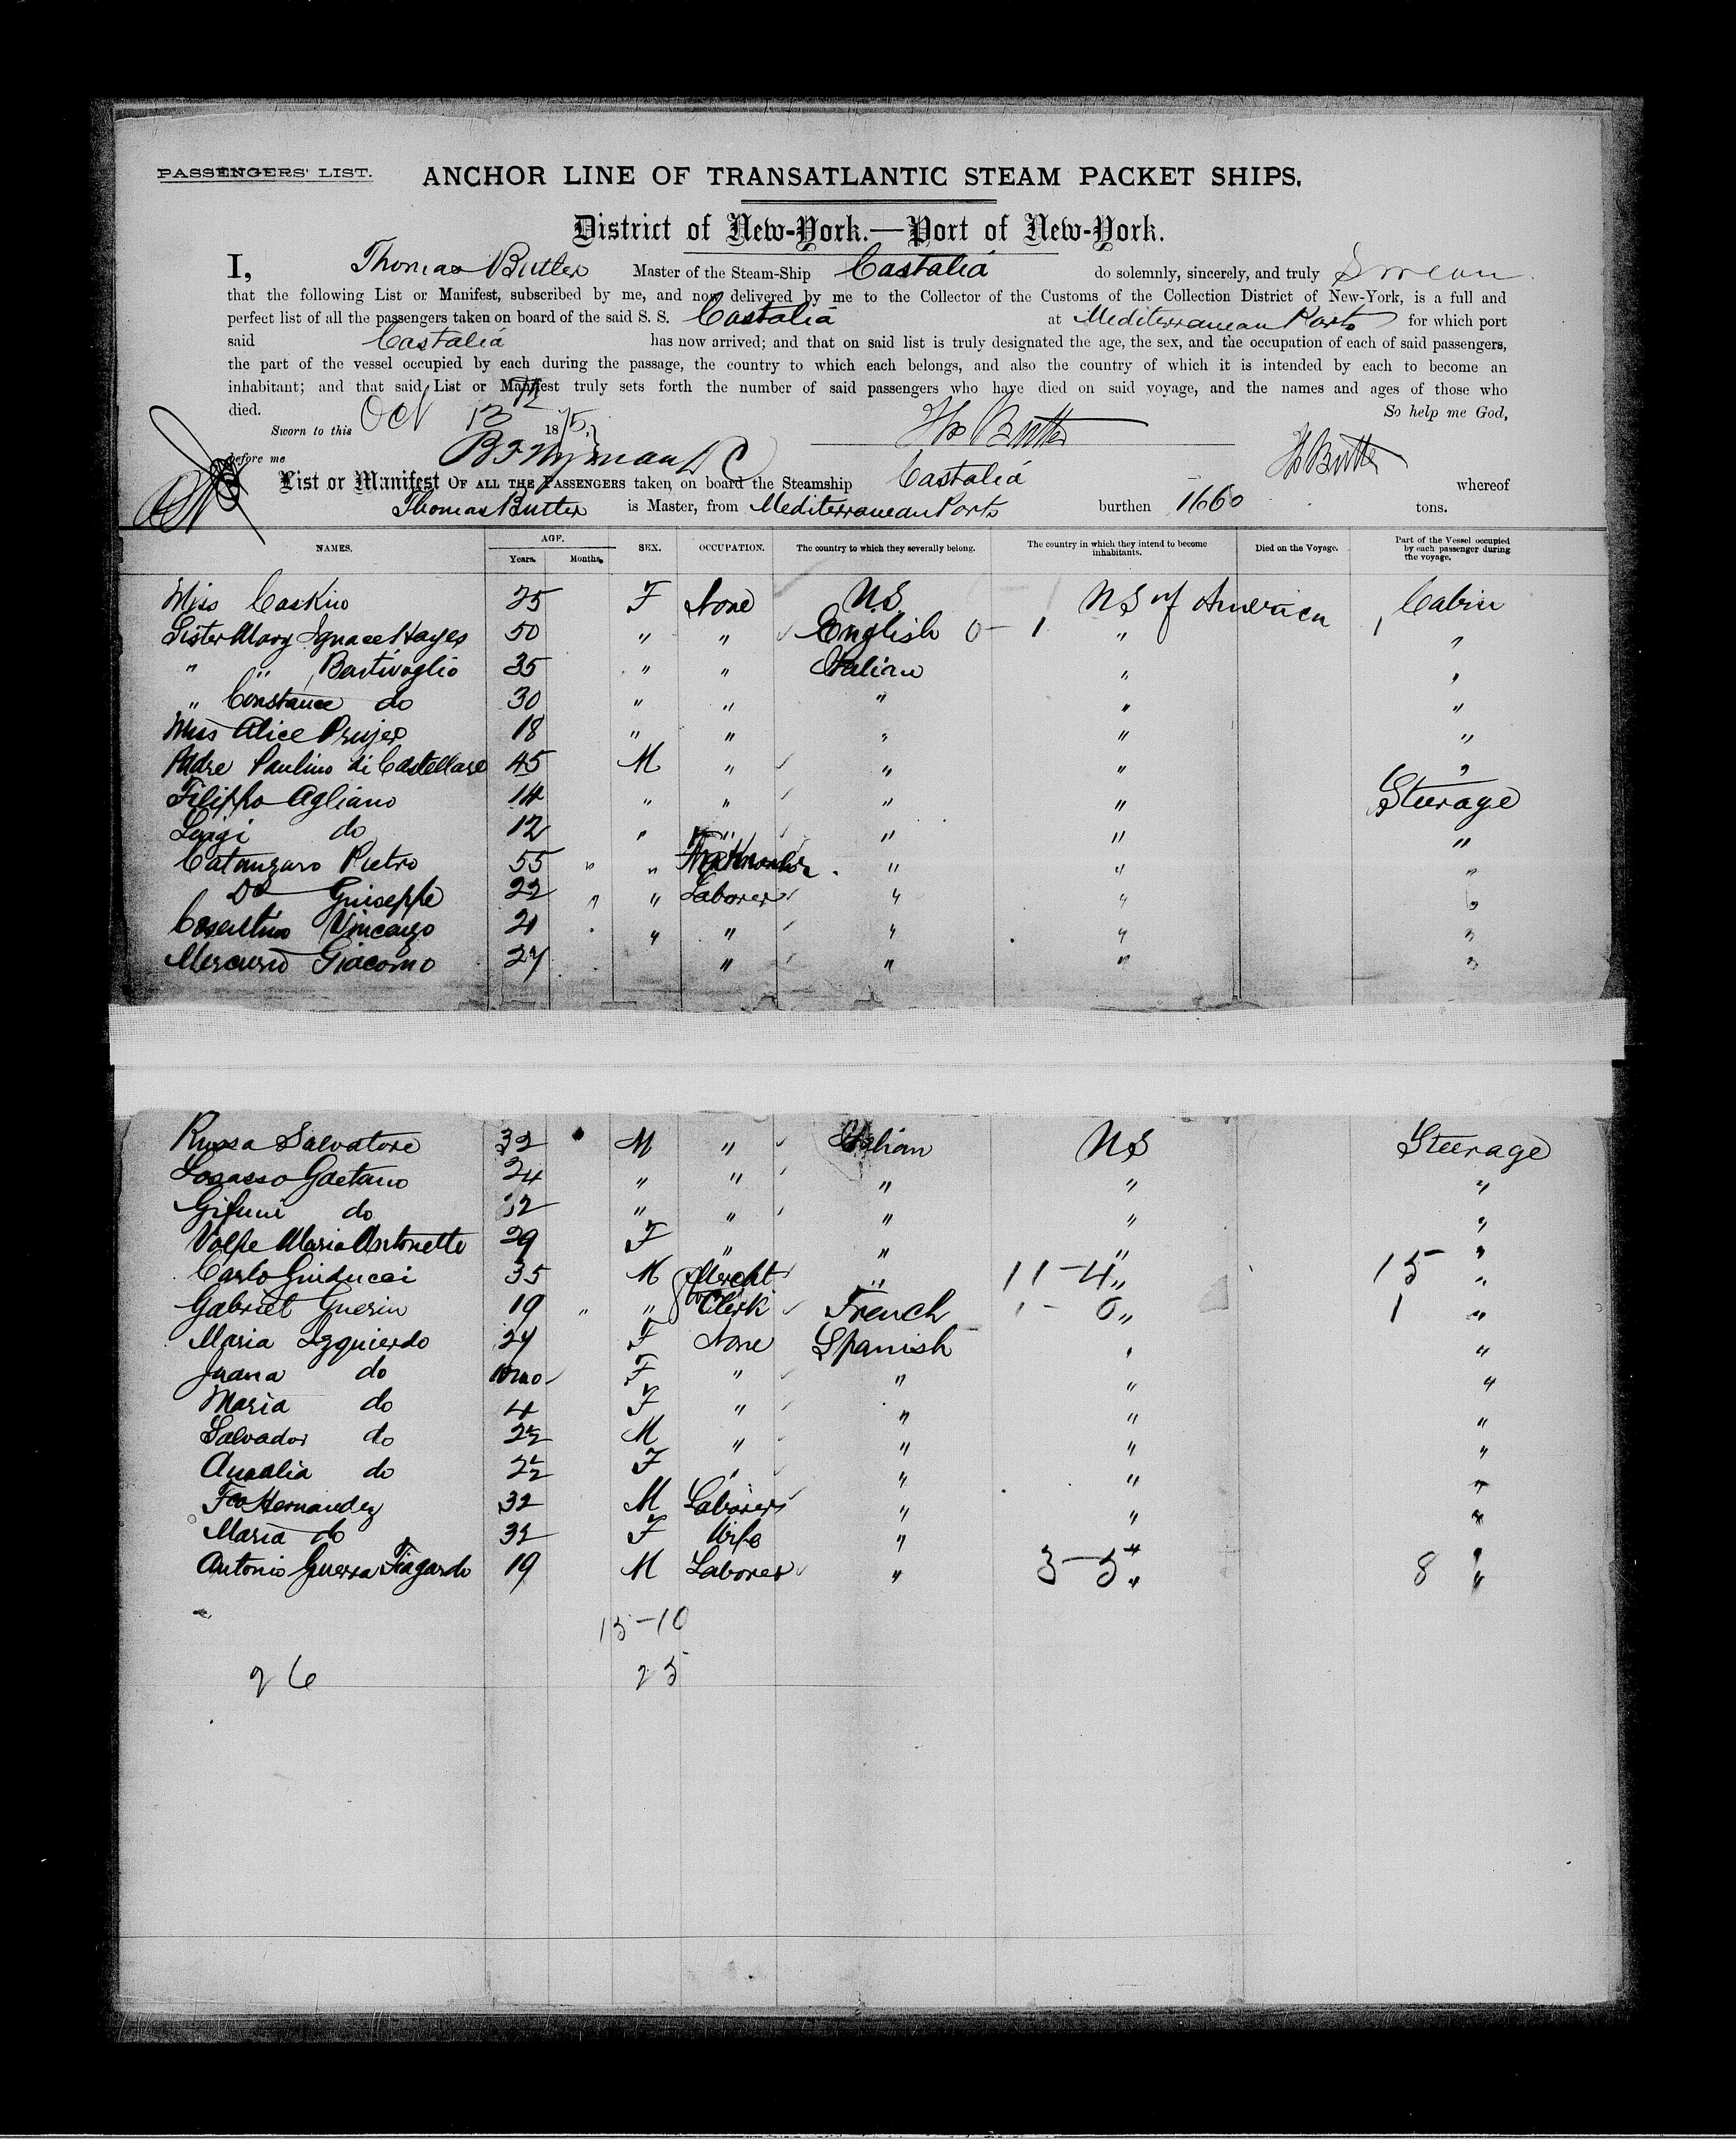 PASSENGERS' LIST.
ANCHOR LINE OF TRANSATLANTIC STEAM PACKET SHIPS.
District of New-York.—Port of New-York.
I, Thomas Butler Master of the Steam-Ship Castalia do solemnly, sincerely, and truly Swear
that the following List or Manifest, subscribed by me, and now delivered by me to the Collector of the Customs of the Collection District of New-York, is a full and
perfect list of all the passengers taken on board of the said S. S. Castalia at Mediterranean Ports for which port
said Castalia has now arrived; and that on said list is truly designated the age, the sex, and the occupation of each of said passengers,
the part of the vessel occupied by each during the passage, the country to which each belongs, and also the country of which it is intended by each to become an
inhabitant; and that said List or Manifest truly sets forth the number of said passengers who have died on said voyage, and the names and ages of those who
died. So help me God,
Sworn to this Oct 13th 1875. Tho Butler
before me B F Wyman D C Tho Butler
List or Manifest OF ALL THE PASSENGERS taken on board the Steamship Castalia whereof
Thomas Butler is Master, from Mediterranean Ports burthen 1660 tons.
NAMES. AGE. Years. Months. SEX. OCCUPATION. The country to which they severally belong. The country in which they intend to become inhabitants. Died on the Voyage. Part of the Vessel occupied by each passenger during the voyage.
Miss Caskin 25 F None U.S. US of America Cabin
Sister Mary Ignace Hayes 50 " " English 0-1 " 1 "
" " Bentivoglio 35 " " Italian " "
" Constance do 30 " " " " "
Miss Alice Prujer 18 " " " " "
Padre Paulino di Castellaro 45 M " " " "
Filippo Agliano 14 " " " " Steerage
Luigi do 12 " " " " "
Catanzaro Pietro 55 " " " " "
Do Guiseppe 22 " " Laborer " " "
Cosentino Vincenzo 21 " " " " "
Mercurio Giacomo 27 " " " "
Russa Salvatore 32 M " Italian US Steerage
Locasso Gaetano 24 " " " " "
Gifuni do 32 " " " " "
Volpe Maria Antonette 29 F " " " "
Carlo Guiducci 35 M Mercht " 11-4 " 15 "
Gabriel Guerin 19 " " Clerk French 1-0 " 1 "
Maria Izquierdo 27 F None Spanish " "
Juana do 10 mo F " " " "
Maria do 4 F " " " "
Salvador do 22 M " " " "
Amalia do 22 F " " " "
Fco Hernandez 32 M Laborer " " "
Maria do 32 F Wife " " "
Antonio Guerra Fiagardo 19 M Laborer " 3-5 " 8 "
15-10
26 25